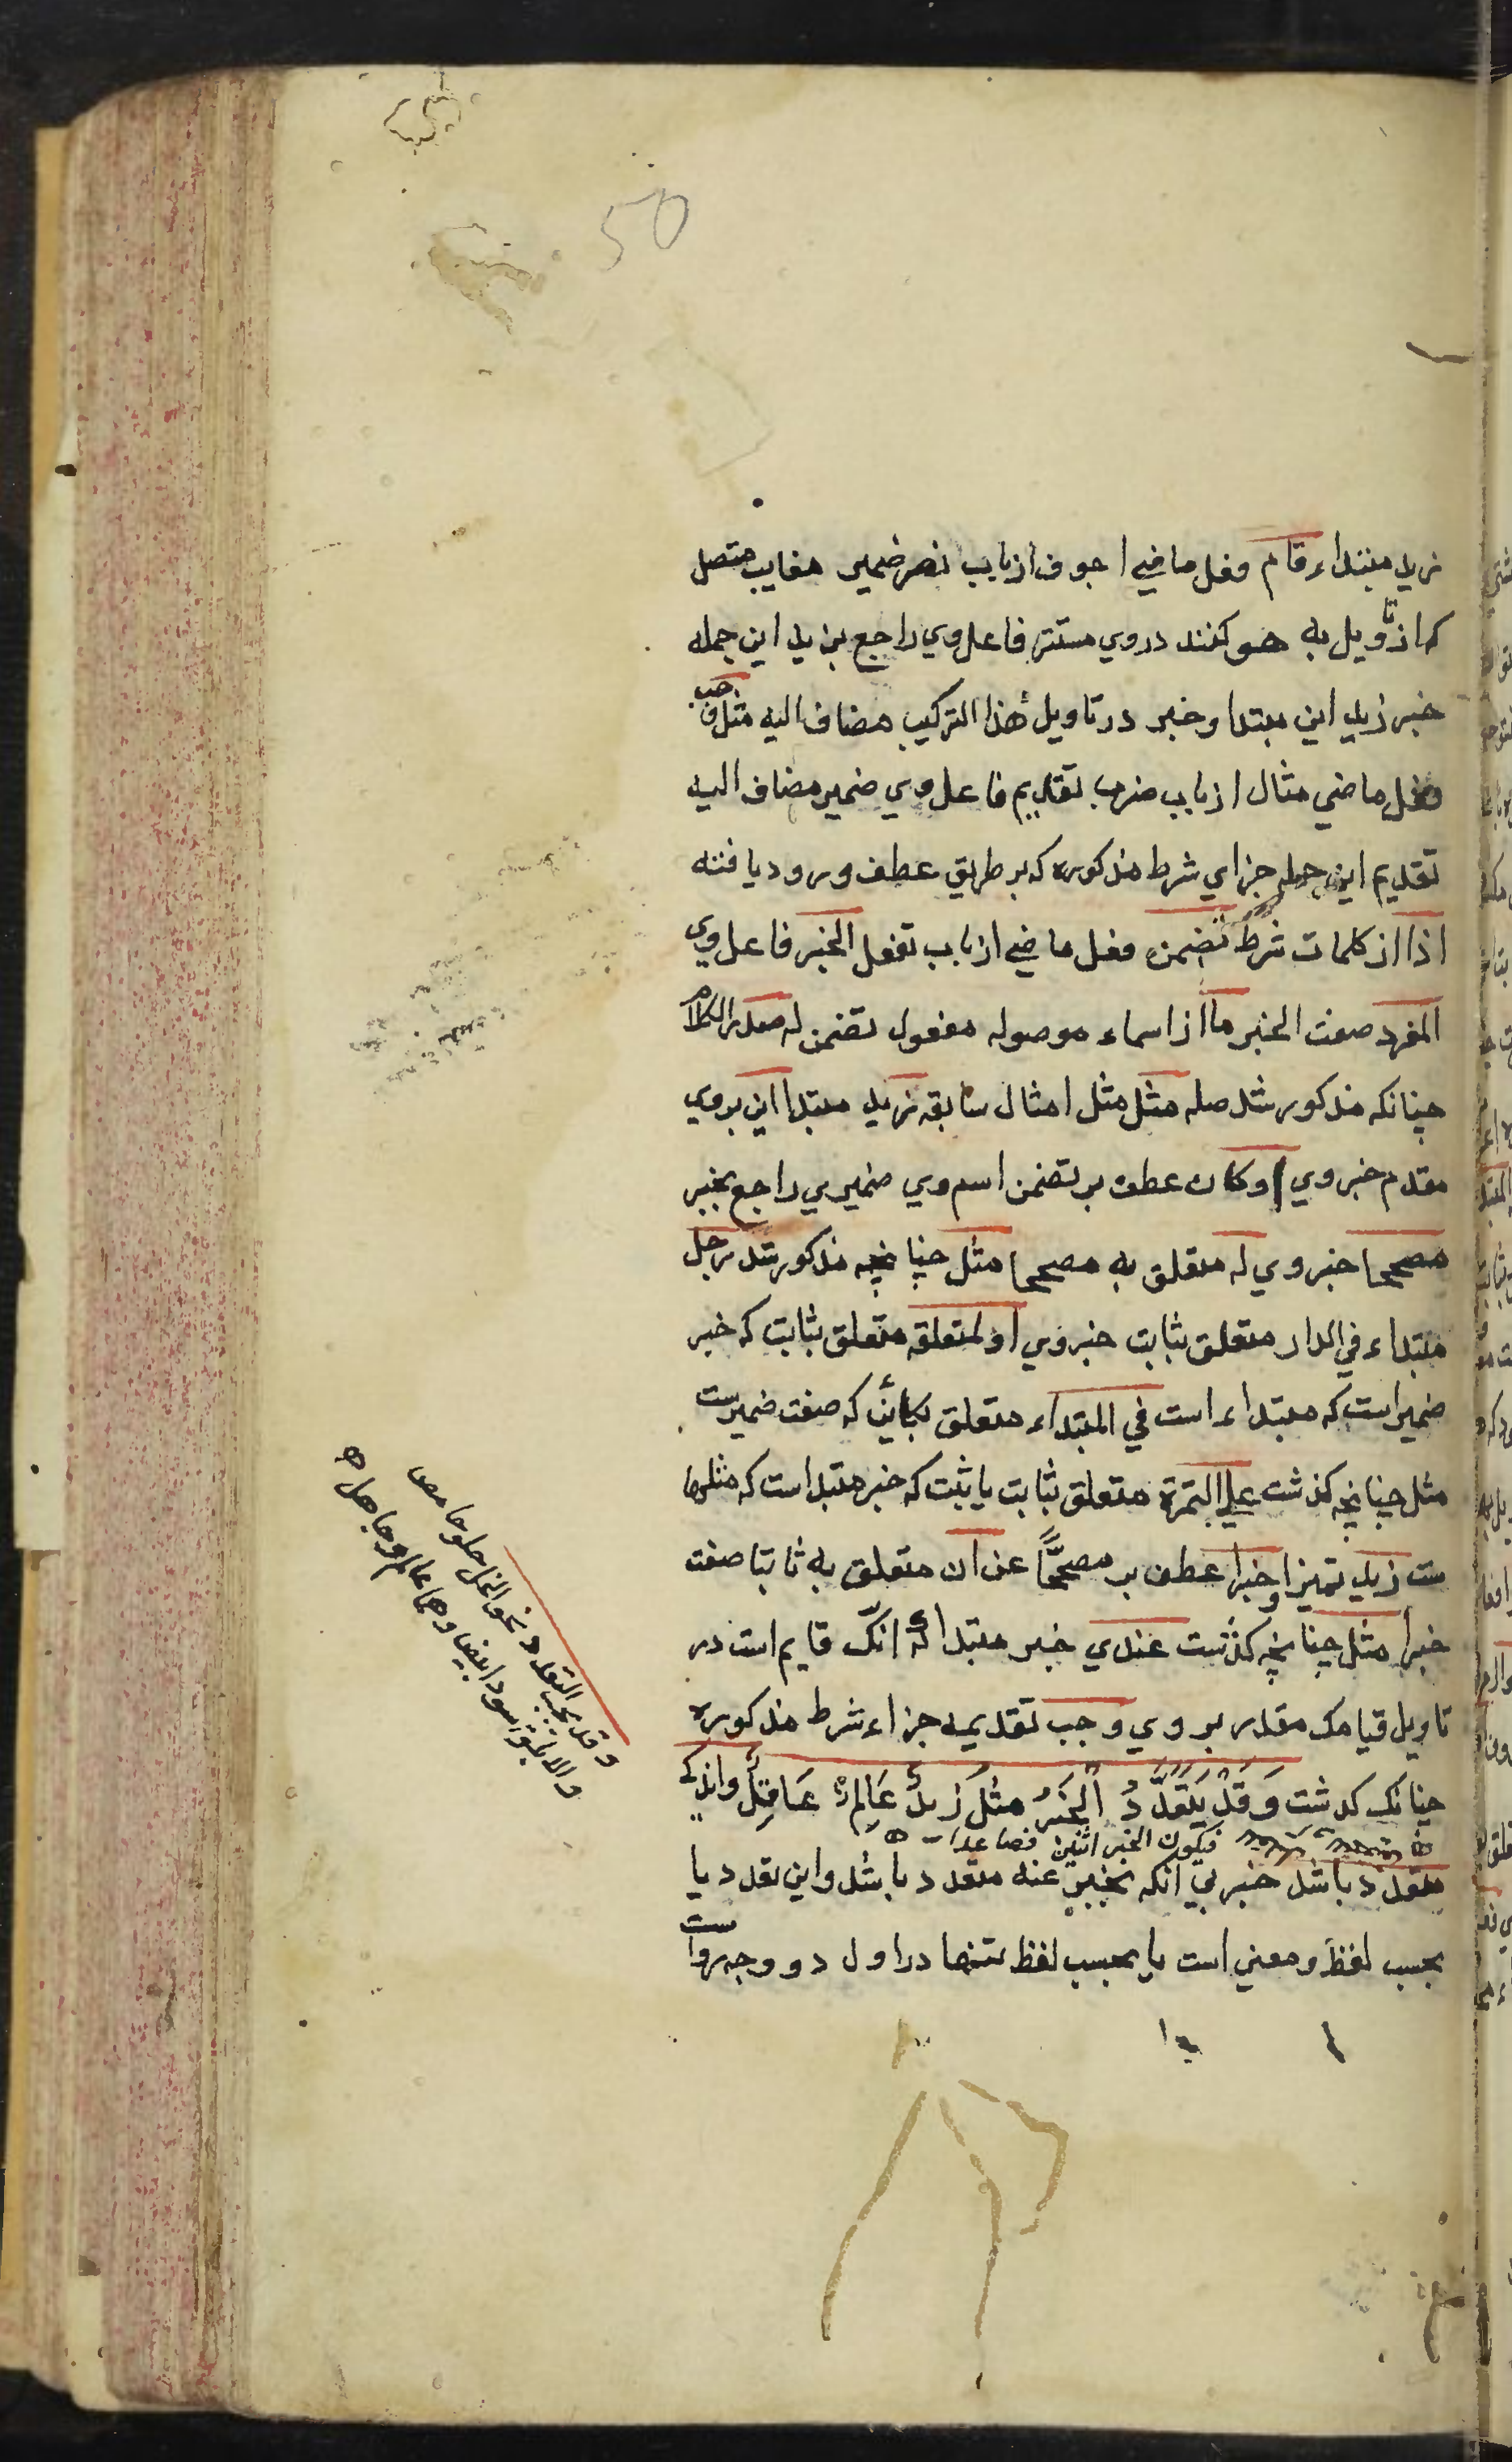 50
زيد مبتداء قام فعل ماضي اجوف از باب نصر ضمير مغايب متصل
كه از تأويل به هو كنند در وي مستتر فاعل وي راجع بزيد اين جمله
خبر زيد اين مبتدا وخبر در تاويل هذا التركيب مضاف اليه مثل وجب
فعل ماضي مثال از باب ضرب تقديم فاعل وي ضمير مضاف اليه
تقديم اين جمله جزاي شرط مذكوره كه بر طريق عطف ورود يافته
اذا از كلمات شرط تضمن فعل ماضي از باب تفعل الخبر فاعل وي
المفرد صفت الخبر ما از اسماء موصوله مفعول تضمن له صدر الكلام
چنانكه مذكور شد صله مثل مثل امثال سابقه زيد مبتدا اين بروي
مقدم خبر وي او كان عطف بر تضمن اسم وي ضميري راجع بخبر
مصححا خبر وي له متعلق به مصححا مثل چنانچه مذكور شد رجل
مبتداء في الدار متعلق بثابت خبر وي او لمتعلقه متعلق بثابت كه خبر
ضمير است كه مبتداء است في المبتداء متعلق بكائن كه صفت ضميرست
مثل چنانچه كذشت علي التمرة متعلق بثابت يا يثبت كه خبر مبتداست كه مثلها
ست زبد تميز او خبرا عطف بر مصححًا عن ان متعلق به ثابتا صفت
خبرا مثل چنانچه كذشت عندي خبر مبتدا كه انك قايم است در
تاويل قيامك مقدر بر وي وجب تقديمه جزاء شرط مذكوره
چنانك كذشت وَقَدْ يَتَعَدَّدُ الْخَبَرُ مثل زَيدٌ عَالِمٌ عَاقِلٌ واندكي
فيكون الخبر اثنين فصاعدا
متعدد باشد خبر بي انكه مخبر عنه متعدد باشد واين تعدد يا
بحسب لفظ ومعني است يا بحسب لفظ تنها در اول دو وجه رواست
وقد يجب التعدد نحو الخل حلو حامض
والابلق اسود ابيض وهما عالم وجاهل